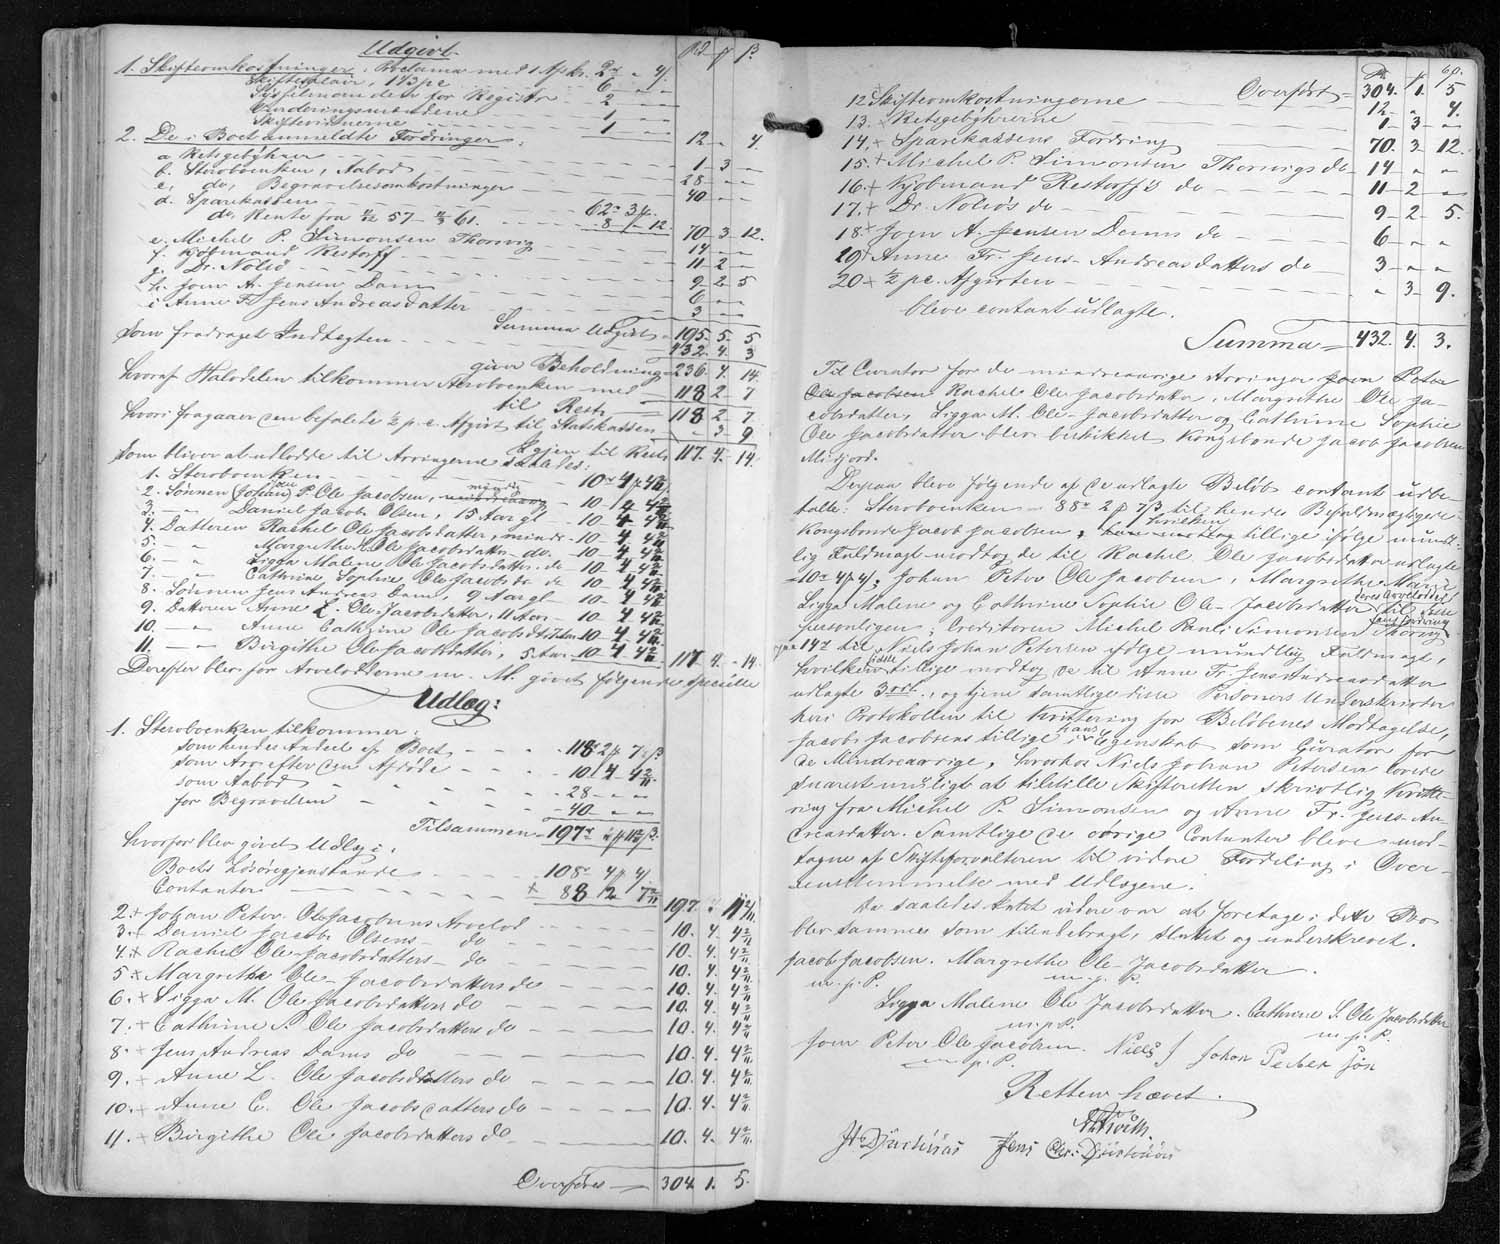 Udgivt. Rd ß
1. Skifteomkostninger: Proclama med 1 Apkr. 2 " 4
Skiftesalair, 1 1/3 pc 6 " "
Sysselmanden for Registr 2 " "
Vurderingsmændene 1 " "
Skiftevidnerne 1 " " 12 " 4.
2. De i Boet anmeldte Fordringer:
a Retsgebyhrer 1 3 "
b. Sterboenken, Aabod 28 " "
c, do, Begravelsesomkostninger 40 " "
d. Sparekassen 62 3
do, Rente fra 57 - 61. 8 " 12. 70 3 12.
e. Michel P. Simonsen Thorsvig 14 " "
f. Kjøbmand Restorff 11 2 "
g. Dr. Nolsø 9 2 5
h. Joen A. Jensen Dam 6 " "
i Anne Fr. Jens Andreasdatter 3 " "
Summa Udgivt 195. 5. 5
Som fradraget Indtægten 432. 4. 3
giver Beholdning 236. 4. 14.
hvoraf Halvdelen tilkommer Sterboenken med 118 2 7
til Rest 118 2 7
hvori fragaaer den befalede 1/2 p.c. Afgivt til Statskassen " 3 9
Igjen til Rest 117. 4. 14.
Som bliver at udlodde til Arvingerne saaledes:
1. Sterboenken 10 4 4 2/11
2. Sønnen (Johan) Joen P. Ole Jacobsen, myndig 10 4 4 2/11
3. " Daniel Jacob Olsen, 15 Aar gl 10 4 4 2/11
4. Datteren Rachel Ole Jacobsdatter, mindr. 10 4 4 2/11
5. " Margrethe Ole Jacobsdatter do. 10 4 4 2/11
6. " Ligga Malene Ole Jacobsdatter. do 10 4 4 2/11
7. " Cathrine Sophie Ole Jacobsdr do 10 4 4 2/11
8. Sønnen Jens Andreas Dam, 9 Aar gl 10 4 4 2/11
9. Datteren Anne L. Ole Jacobsdatter, 11 Aar 10 4 4 2/11
10. " Anne Cathrine Ole Jacobsdr 10 4 4 2/11
11. " Birgithe Ole Jacobsdatter, 5 Aar 10 4 4 2/11 117 4 14.
Derefter blev for Arvelodderne m. M. givet følgende specielle
Udlæg:
1. Sterboenken tilkommer:
Som hendes Andeel af Boet 118 2 7 ß
Som Arv efter den Afdøde 10 4 4 2/11
som Aabod 28 " "
for Begravelsen 40 " "
Tilsammen 197 " 11 2/11 ß.
hvorfor blev givet Udlæg i:
Boets Løsøregjenstande 108 4 4
Contanter 88 2 7 2/11 197. " 11 2/11
2. + Johan Peter Ole Jacobsens Arvelod 10. 4. 4 2/11
3. + Daniel Jacob Olsens do 10. 4. 4 2/11
4. + Rachel Ole Jacobsdatters do 10. 4. 4 2/11
5 + Margrethe Ole Jacobsdatters do 10. 4. 4 2/11
6. + Ligga M. Ole Jacobsdatters do 10. 4. 4 2/11
7. + Cathrine S. Ole Jacobsdatters do 10. 4. 4 2/11
8. + Jens Andreas Dams do 10. 4. 4 2/11
9. + Anne L. Ole Jacobsdatters do 10. 4. 4 2/11
10. + Anne C. Ole Jacobsdatters do 10. 4. 4 2/11
11. + Birgithe Ole Jacobsdatters do 10. 4. 4 2/11
Overføres 304. 1. 5.
60.
Overført 304. 1. 5
12 Skifteomkostningerne 12 " 4.
13. + Retsgebyhrerne 1 3 "
14. + Sparekassens Fordring 70. 3 12.
15. + Michel P. Simonsen Thorsvigs do 14 " "
16. + Kjøbmand Restorff's do 11 2 "
17. + Dr. Nolsøs do 9 2 5.
18. + Joen A. Jensen Dams do 6 " "
19 + Anne Fr. Jens Andreasdatters do 3 " "
20 + 1/2 pc. Afgivten " 3 9.
bleve contant udlagte.
Summa 432. 4. 3.
Til Curator for de mindreaarige Arvinger Joen Peter
Ole Jacobsen Rachel Ole Jacobsdatter, Margrethe Ole Ja-
cobsdatter, Ligga M. Ole Jacobsdatter og Cathrine Sophie
Ole Jacobsdatter blev beskikket Kongsbonde Jacob Jacobsen
Midfjord.
Derpaa bleve følgende af de udlagte Beløb contant udbe-
talte: Sterboenken 88 2 7 ß til hendes Befuldmægtigede
Kongsbonde Jacob Jacobsen, hvilken tillige ifølge mundt-
lig Fuldmagt modtog de til Rachel Ole Jacobsdatter udlagte
10 4 4; Johan Peter Ole Jacobsen, Margrethe Marie
Ligga Malene og Cathrine Sophie Ole Jacobsdatter deres Arvelodder til disse
personligen; Creditoren Michel Pauli Simonsen Thorsvig hans Fordring
14 til Niels Johan Petersen ifølge mundtlig Fuldmagt,
hvilken sidste tillige modtog de til Anne Fr. Jens Andreasdatter
udlagte 3 , og tjene samtlige disse Personers Underskrivter
her i Protokollen til Kvittering for Beløbenes Modtagelse,
Jacob Jacobsens tillige i hans Egenskab som Curator for
de Mindreaarige, hvorhos Niels Johan Petersen lovede
snarest muligt at tilstille Skifteretten skrivtlig Kvitte-
ring fra Michel P. Simonsen og Anne Fr. Jens An-
dreasdatter. Samtlige de øvrige Contanter bleve mod-
tagne af Skifteforvalteren til videre Fordeling i Over-
eensstemmelse med Udlægene.
Da saaledes Intet videre var at foretage i dette Bo
blev sammes som tilendebragt, sluttet og underskrevet.
Jacob Jacobsen. Margrethe Ole Jacobsdatter.
m. p. P. m. p. P.
Ligga Malene Ole Jacobsdatter. Cathrine S. Ole Jacobsdatter
m. p. P. m. p. P.
Joen Peter Ole Jacobsen. Niels J Johan Petersen
m. p. P.
Retten hævet.
Jens Chr: